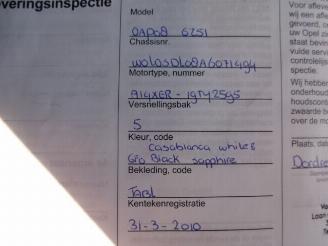 veringsinspectie
Model
0AP08 6251
Chassisnr.
W0L0SDL08A6071494
Motortype, nummer
A14XER - 19TY2595
Versnellingsbak
5
Kleur, code
Casablanca white &
G70 Black sapphire
Bekleding, code
TABL
Kentekenregistratie
31-3-2010
Voor aflever
wij een afle
gevoerd, co
uw Opel zin
staat bevind
vuide servic
controlelijst
spectie.
Wij hebben
onderhoud
houdscontr
zwaarde be
over de mo
Plaats, dat
Dordre